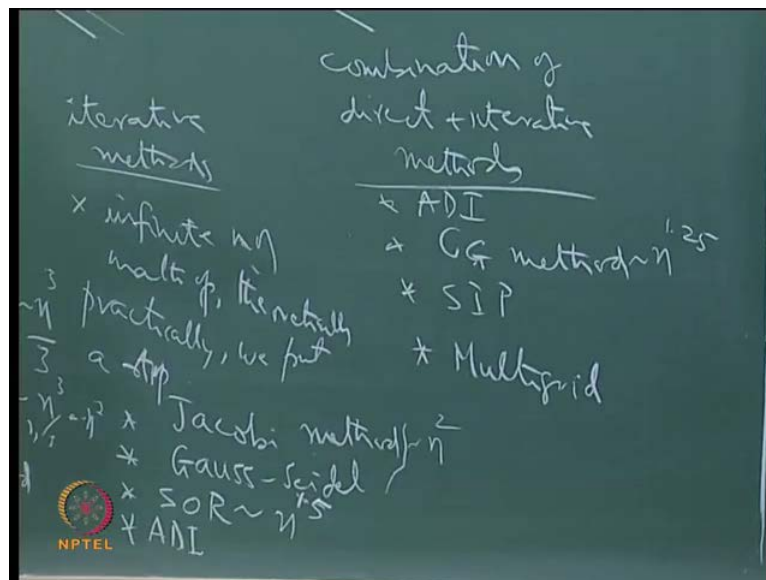 iterative
methods
× infinite no of
mult op, theoretically
practically, we put
a
* Jacobi method ~ n²
* Gauss-Seidel
* SOR ~ n^1.5
* ADI
combination of
direct + iterative
methods
* ADI
* CG method ~ n^1.25
* SIP
* Multigrid
~n³
3
n³
NPTEL